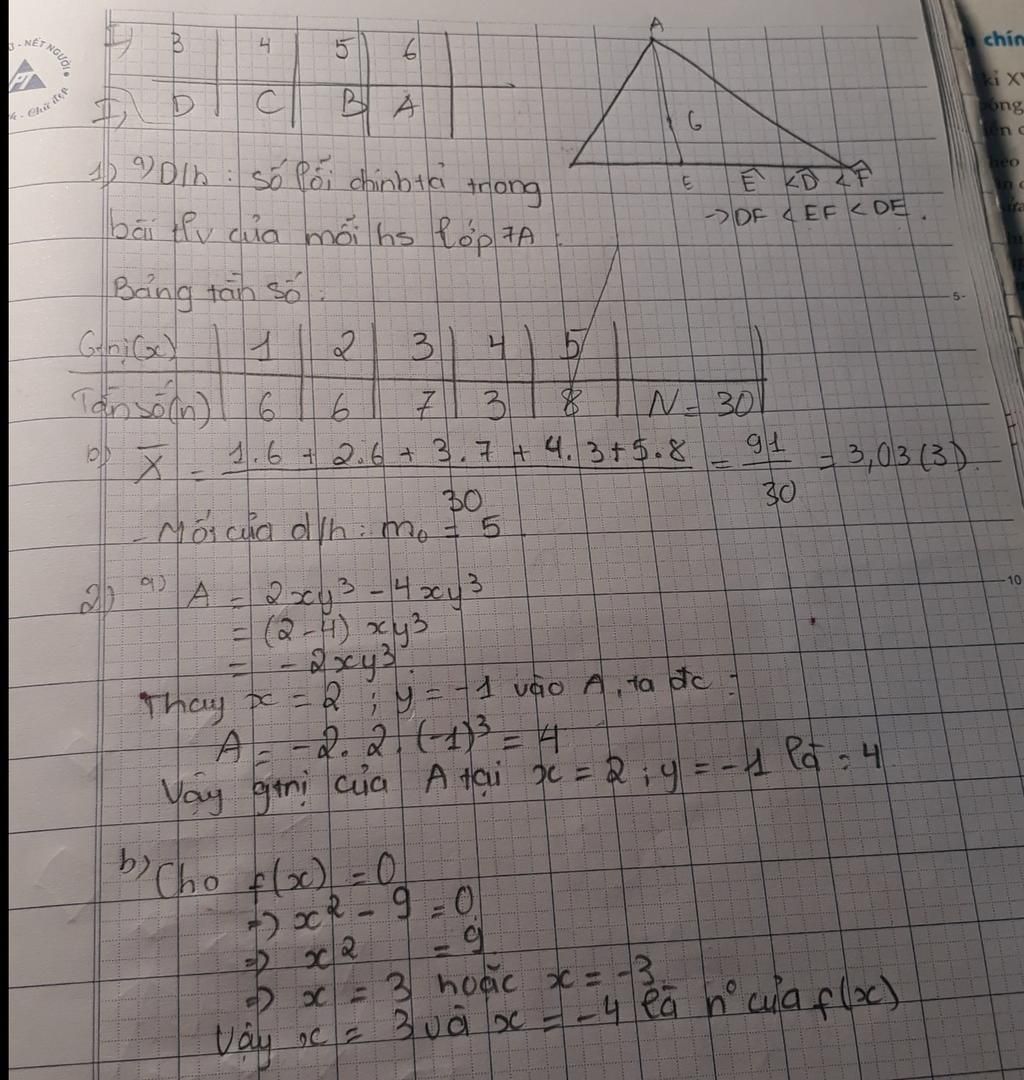 - NẾT NGƯỜI
Chữ đẹp
I, 3 4 5 6
I, D C B A
A
G
E
E < D < F
→ DF < EF < DE.
1) a) D/h: số lỗi chính tả trong
bài tlv của mỗi hs lớp 7A.
Bảng tần số:
Gtrị(x) 1 2 3 4 5
Tần số(n) 6 6 7 3 8 N = 30
b) X̅ = (1.6 + 2.6 + 3.7 + 4.3 + 5.8)/30 = 91/30 = 3,03(3).
- Mốt của d/h: m₀ = 5
2) a) A = 2xy³ - 4xy³
= (2-4) xy³
= - 2xy³.
Thay x = 2 ; y = -1 vào A, ta đc:
A = -2. 2. (-1)³ = 4
Vậy gtrị của A tại x = 2 ; y = -1 là : 4
b) Cho f(x) = 0
⇒ x² - 9 = 0
⇒ x² = 9
⇒ x = 3 hoặc x = -3
Vậy x = 3 và x = -4 là n° của f(x)
chín
kỉ XV
5-
10